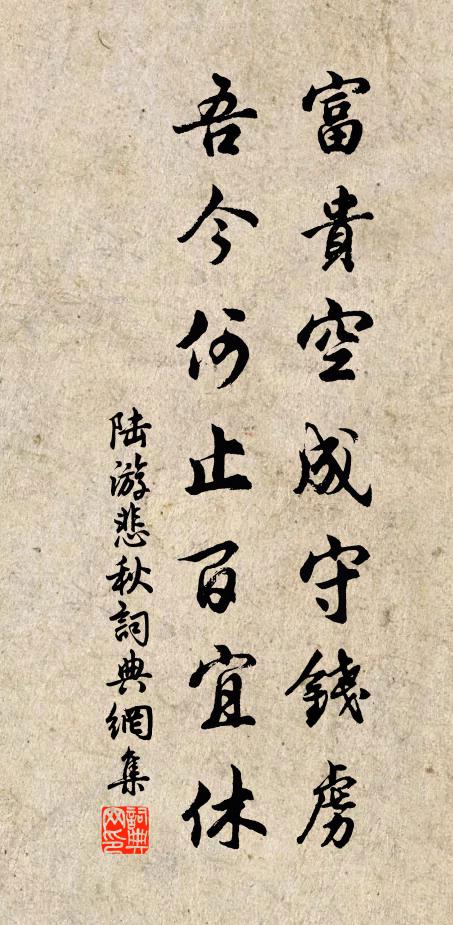 富貴空成守錢虜
吾今何止百宜休
陆游悲秋詞典網集
詞典网印